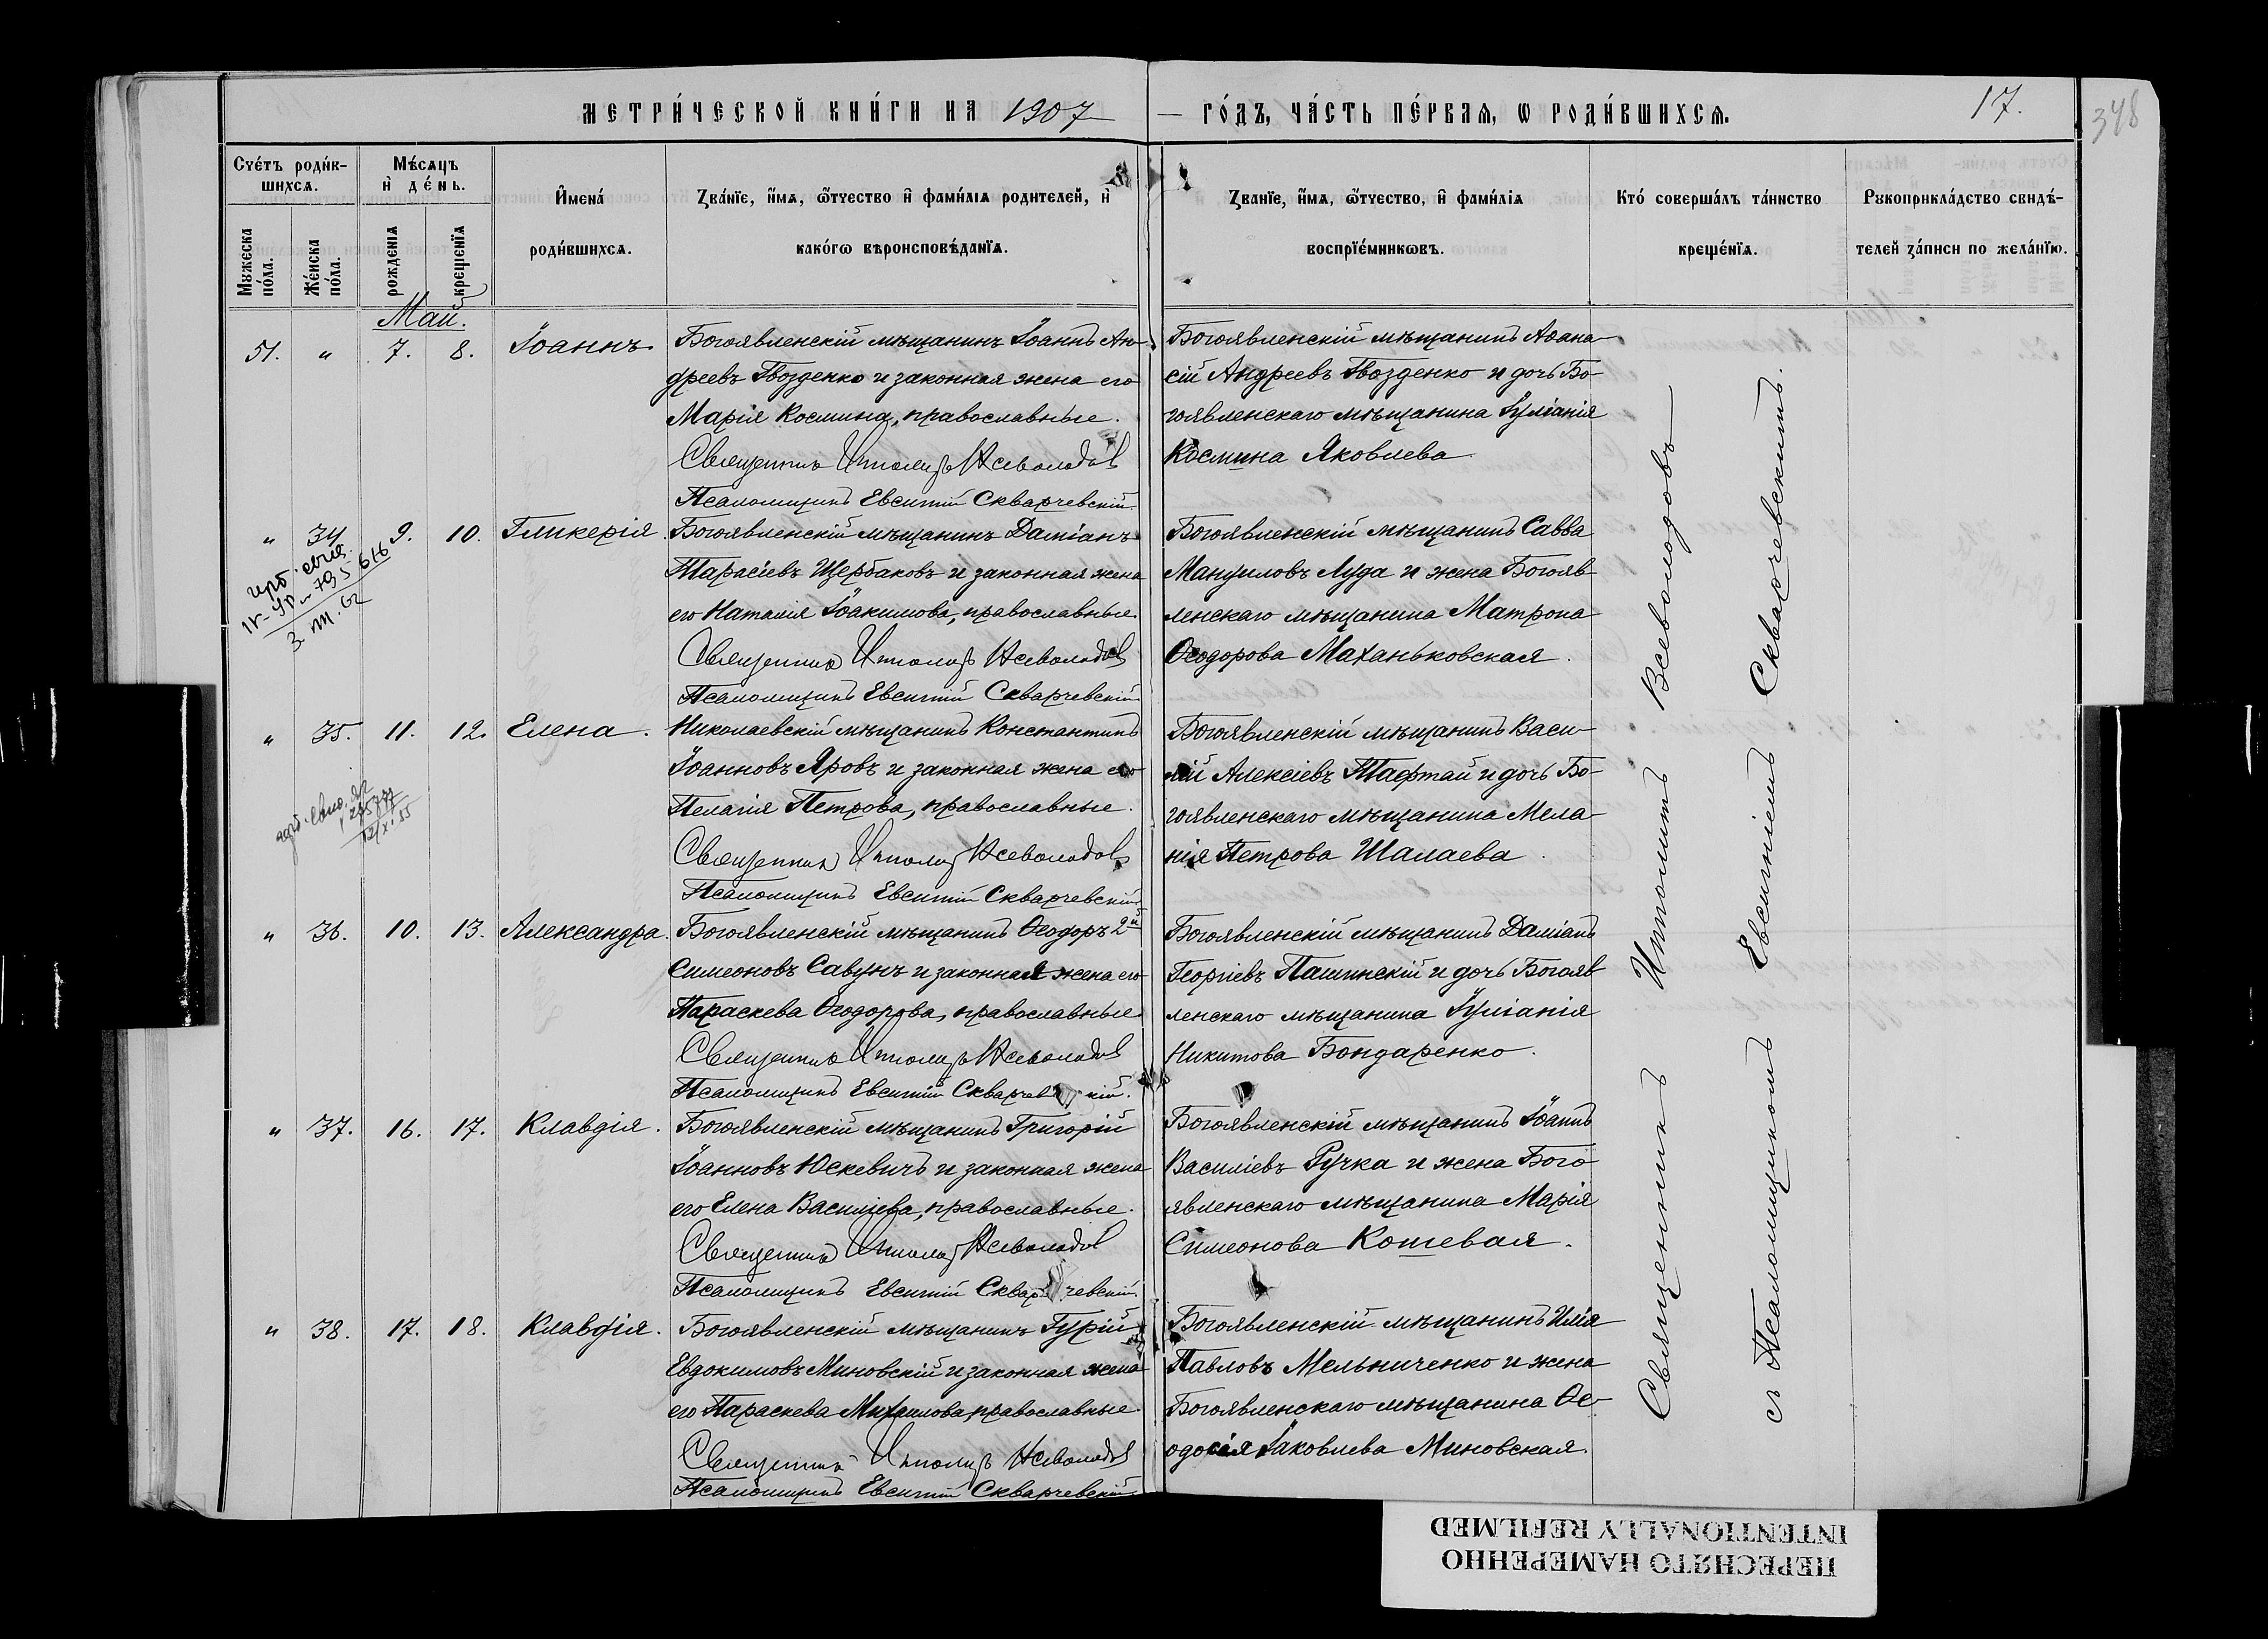 МЕТРИ́ЧЕСКОЙ КНИ́ГИ НА 1907
— ГО́ДЪ, ЧА́СТЬ ПЕ́РВАѦ, Ѡ РОДИ́ВШИХСѦ.
17.
348
Сче́тъ роди́в-
шихсѧ.
Мꙋжеска
по́ла.
Же́нска
по́ла.
Мѣ́сѧцъ
и҆ де́нь.
рожденїѧ
крещенїѧ
И҆мена̀
роди́вшихсѧ.
Зва́нїе, и҆́мѧ, ѻ҆́тчество и҆ фами́лїѧ родителей, и҆
како́гѡ вѣроисповѣ́данїѧ.
Зва́нїе, и҆́мѧ, ѻ҆́тчество, и҆ фами́лїѧ
воспрїе́мникѡвъ.
Кто́ соверша́лъ та́инство
креще́нїѧ.
Рꙋкоприкла́дство свидѣ́-
телей за́писи по жела́нїю.
Май.
51. " 7. 8. Іоаннъ.
Богоявленскій мѣщанинъ Іоаннъ Ан-
дреевъ Гвозденко и законная жена его
Марія Космина, православные.
Священникъ Ипполитъ Всеволодовъ
Псаломщикъ Евсигній Скварчевскій.
Богоявленскій мѣщанинъ Аѳана-
сій Андреевъ Гвозденко и дочь Бо-
гоявленскаго мѣщанина Іуліанія
Космина Яковлева
" 34. 9. 10. Гликерія
Богоявленскій мѣщанинъ Даміанъ
Тарасіевъ Щербаковъ и законная жена
его Наталія Іоакимова, православные.
Священникъ Ипполитъ Всеволодовъ
Псаломщикъ Евсигній Скварчевскій
Богоявленскій мѣщанинъ Савва
Мануиловъ Луда и жена Богояв-
ленскаго мѣщанина Матрона
Ѳеодорова Маханьковская.
" 35. 11. 12. Елена.
Николаевскій мѣщанинъ Константинъ
Іоанновъ Яровъ и законная жена его
Пелагія Петрова, православные.
Священникъ Ипполитъ Всеволодовъ
Псаломщикъ Евсигній Скварчевскій
Богоявленскій мѣщанинъ Васи-
лій Алексіевъ Тафтай и дочь Бо-
гоявленскаго мѣщанина Мела-
нія Петрова Шалаева.
" 36. 10. 13. Александра.
Богоявленскій мѣщанинъ Ѳеодоръ 2й
Симеоновъ Савунъ и законная жена его
Параскева Ѳеодорова, православные.
Священникъ Ипполитъ Всеволодовъ
Псаломщикъ Евсигній Скварчевскій.
Богоявленскій мѣщанинъ Даміанъ
Георгіевъ Пашинскій и дочь Богояв-
ленскаго мѣщанина Іуліанія
Никитова Бондаренко.
" 37. 16. 17. Клавдія.
Богоявленскій мѣщанинъ Григорій
Іоанновъ Юскевичъ и законная жена
его Елена Василіева, православные.
Священникъ Ипполитъ Всеволодовъ
Псаломщикъ Евсигній Скварчевскій.
Богоявленскій мѣщанинъ Іоаннъ
Василіевъ Ручка и жена Бого-
явленскаго мѣщанина Марія
Симеонова Кошевая.
" 38. 17. 18. Клавдія.
Богоявленскій мѣщанинъ Гурій
Евдокимовъ Миновскій и законная жена
его Параскева Михаилова, православные.
Священникъ Ипполитъ Всеволодовъ
Псаломщикъ Евсигній Скварчевскій
Богоявленскій мѣщанинъ Илія
Павловъ Мельниченко и жена
Богоявленскаго мѣщанина Ѳе-
одосія Іаковлева Миновская.
Священникъ Ипполитъ Всеволодовъ
съ Псаломщикомъ Евсигніемъ Скварчевскимъ.
ПЕРЕСНЯТО НАМЕРЕННО
INTENTIONALLY REFILMED